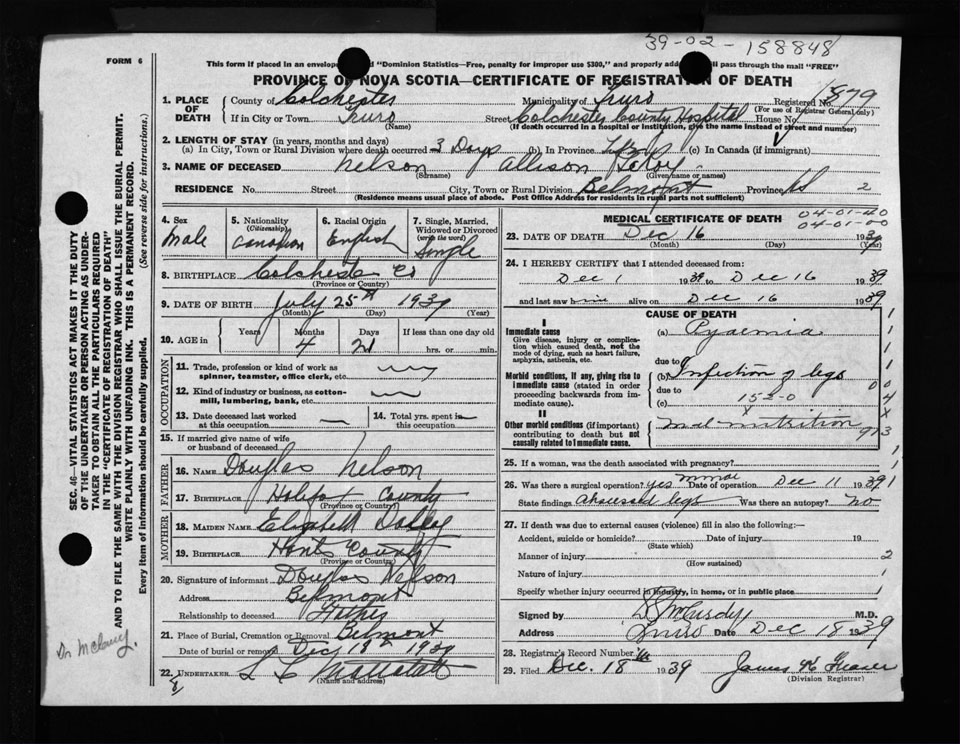 39-02-158848
FORM 6
This form if placed in an envelope "Dominion Statistics—Free, penalty for improper use $300," and properly addressed will pass through the mail "FREE"
PROVINCE OF NOVA SCOTIA—CERTIFICATE OF REGISTRATION OF DEATH
1. PLACE OF DEATH County of Colchester Municipality of Truro Registered No. 1579
(For use of Registrar General only)
If in City or Town Truro Street Colchester County Hospital House No.
(Name) (If death occurred in a hospital or institution, give the name instead of street and number)
2. LENGTH OF STAY (in years, months and days)
(a) In City, Town or Rural Division where death occurred 3 Days (b) In Province (c) In Canada (if immigrant)
3. NAME OF DECEASED Nelson Allison LeRoy
(Surname) (Given name or names)
RESIDENCE No. Street City, Town or Rural Division Belmont Province NS 2
(Residence means usual place of abode. Post Office Address for residents in rural parts not sufficient)
4. Sex Male
5. Nationality (Citizenship) Canadian
6. Racial Origin English
7. Single, Married, Widowed or Divorced (write the word) Single
8. BIRTHPLACE Colchester Co
(Province or Country)
9. DATE OF BIRTH July 25th 1939
(Month) (Day) (Year)
10. AGE in Years Months 4 Days 21 If less than one day old
hrs. or min.
OCCUPATION
11. Trade, profession or kind of work as spinner, teamster, office clerk, etc.
12. Kind of industry or business, as cotton-mill, lumbering, bank, etc.
13. Date deceased last worked at this occupation
14. Total yrs. spent in this occupation
15. If married give name of wife or husband of deceased
FATHER
16. NAME Douglas Nelson
17. BIRTHPLACE Halifax County
(Province or Country)
MOTHER
18. MAIDEN NAME Elizabeth
19. BIRTHPLACE Hants County
(Province or Country)
20. Signature of informant Douglas Nelson
Address Belmont
Relationship to deceased Father
21. Place of Burial, Cremation or Removal Belmont
Date of burial or removal Dec 18th 1939
22. UNDERTAKER
(Name and address)
MEDICAL CERTIFICATE OF DEATH
04-01-40
04-01-00
23. DATE OF DEATH Dec 16 1939
(Month) (Day) (Year)
24. I HEREBY CERTIFY that I attended deceased from:
Dec 1 1939 to Dec 16 1939
and last saw him alive on Dec 16 1939
CAUSE OF DEATH
I
Immediate cause (a) Pyaemia
Give disease, injury or complication which caused death, not the mode of dying, such as heart failure, asphyxia, asthenia, etc.
due to
Morbid conditions, if any, giving rise to immediate cause (stated in order proceeding backwards from immediate cause). (b) Infection of legs
due to
(c) 152-0
II
Other morbid conditions (if important) contributing to death but not causally related to immediate cause. Malnutrition
973
25. If a woman, was the death associated with pregnancy?
26. Was there a surgical operation? Yes minor Date of operation Dec 11 1939
State findings Abscessed legs Was there an autopsy? No
27. If death was due to external causes (violence) fill in also the following:—
Accident, suicide or homicide? Date of injury 19
(State which)
Manner of injury 2
(How sustained)
Nature of injury 1
Specify whether injury occurred in industry, in home, or in public place 1
Signed by M.D.
Address Truro Date Dec 18 1939
28. Registrar's Record Number
29. Filed Dec. 18 1939
(Division Registrar)
SEC. 46—VITAL STATISTICS ACT MAKES IT THE DUTY
OF THE UNDERTAKER OR PERSON ACTING AS UNDER-
TAKER TO OBTAIN ALL THE PARTICULARS REQUIRED
IN THE "CERTIFICATE OF REGISTRATION OF DEATH"
AND TO FILE THE SAME WITH THE DIVISION REGISTRAR WHO SHALL ISSUE THE BURIAL PERMIT.
WRITE PLAINLY WITH UNFADING INK. THIS IS A PERMANENT RECORD.
Every item of information should be carefully supplied. (See reverse side for instructions.)